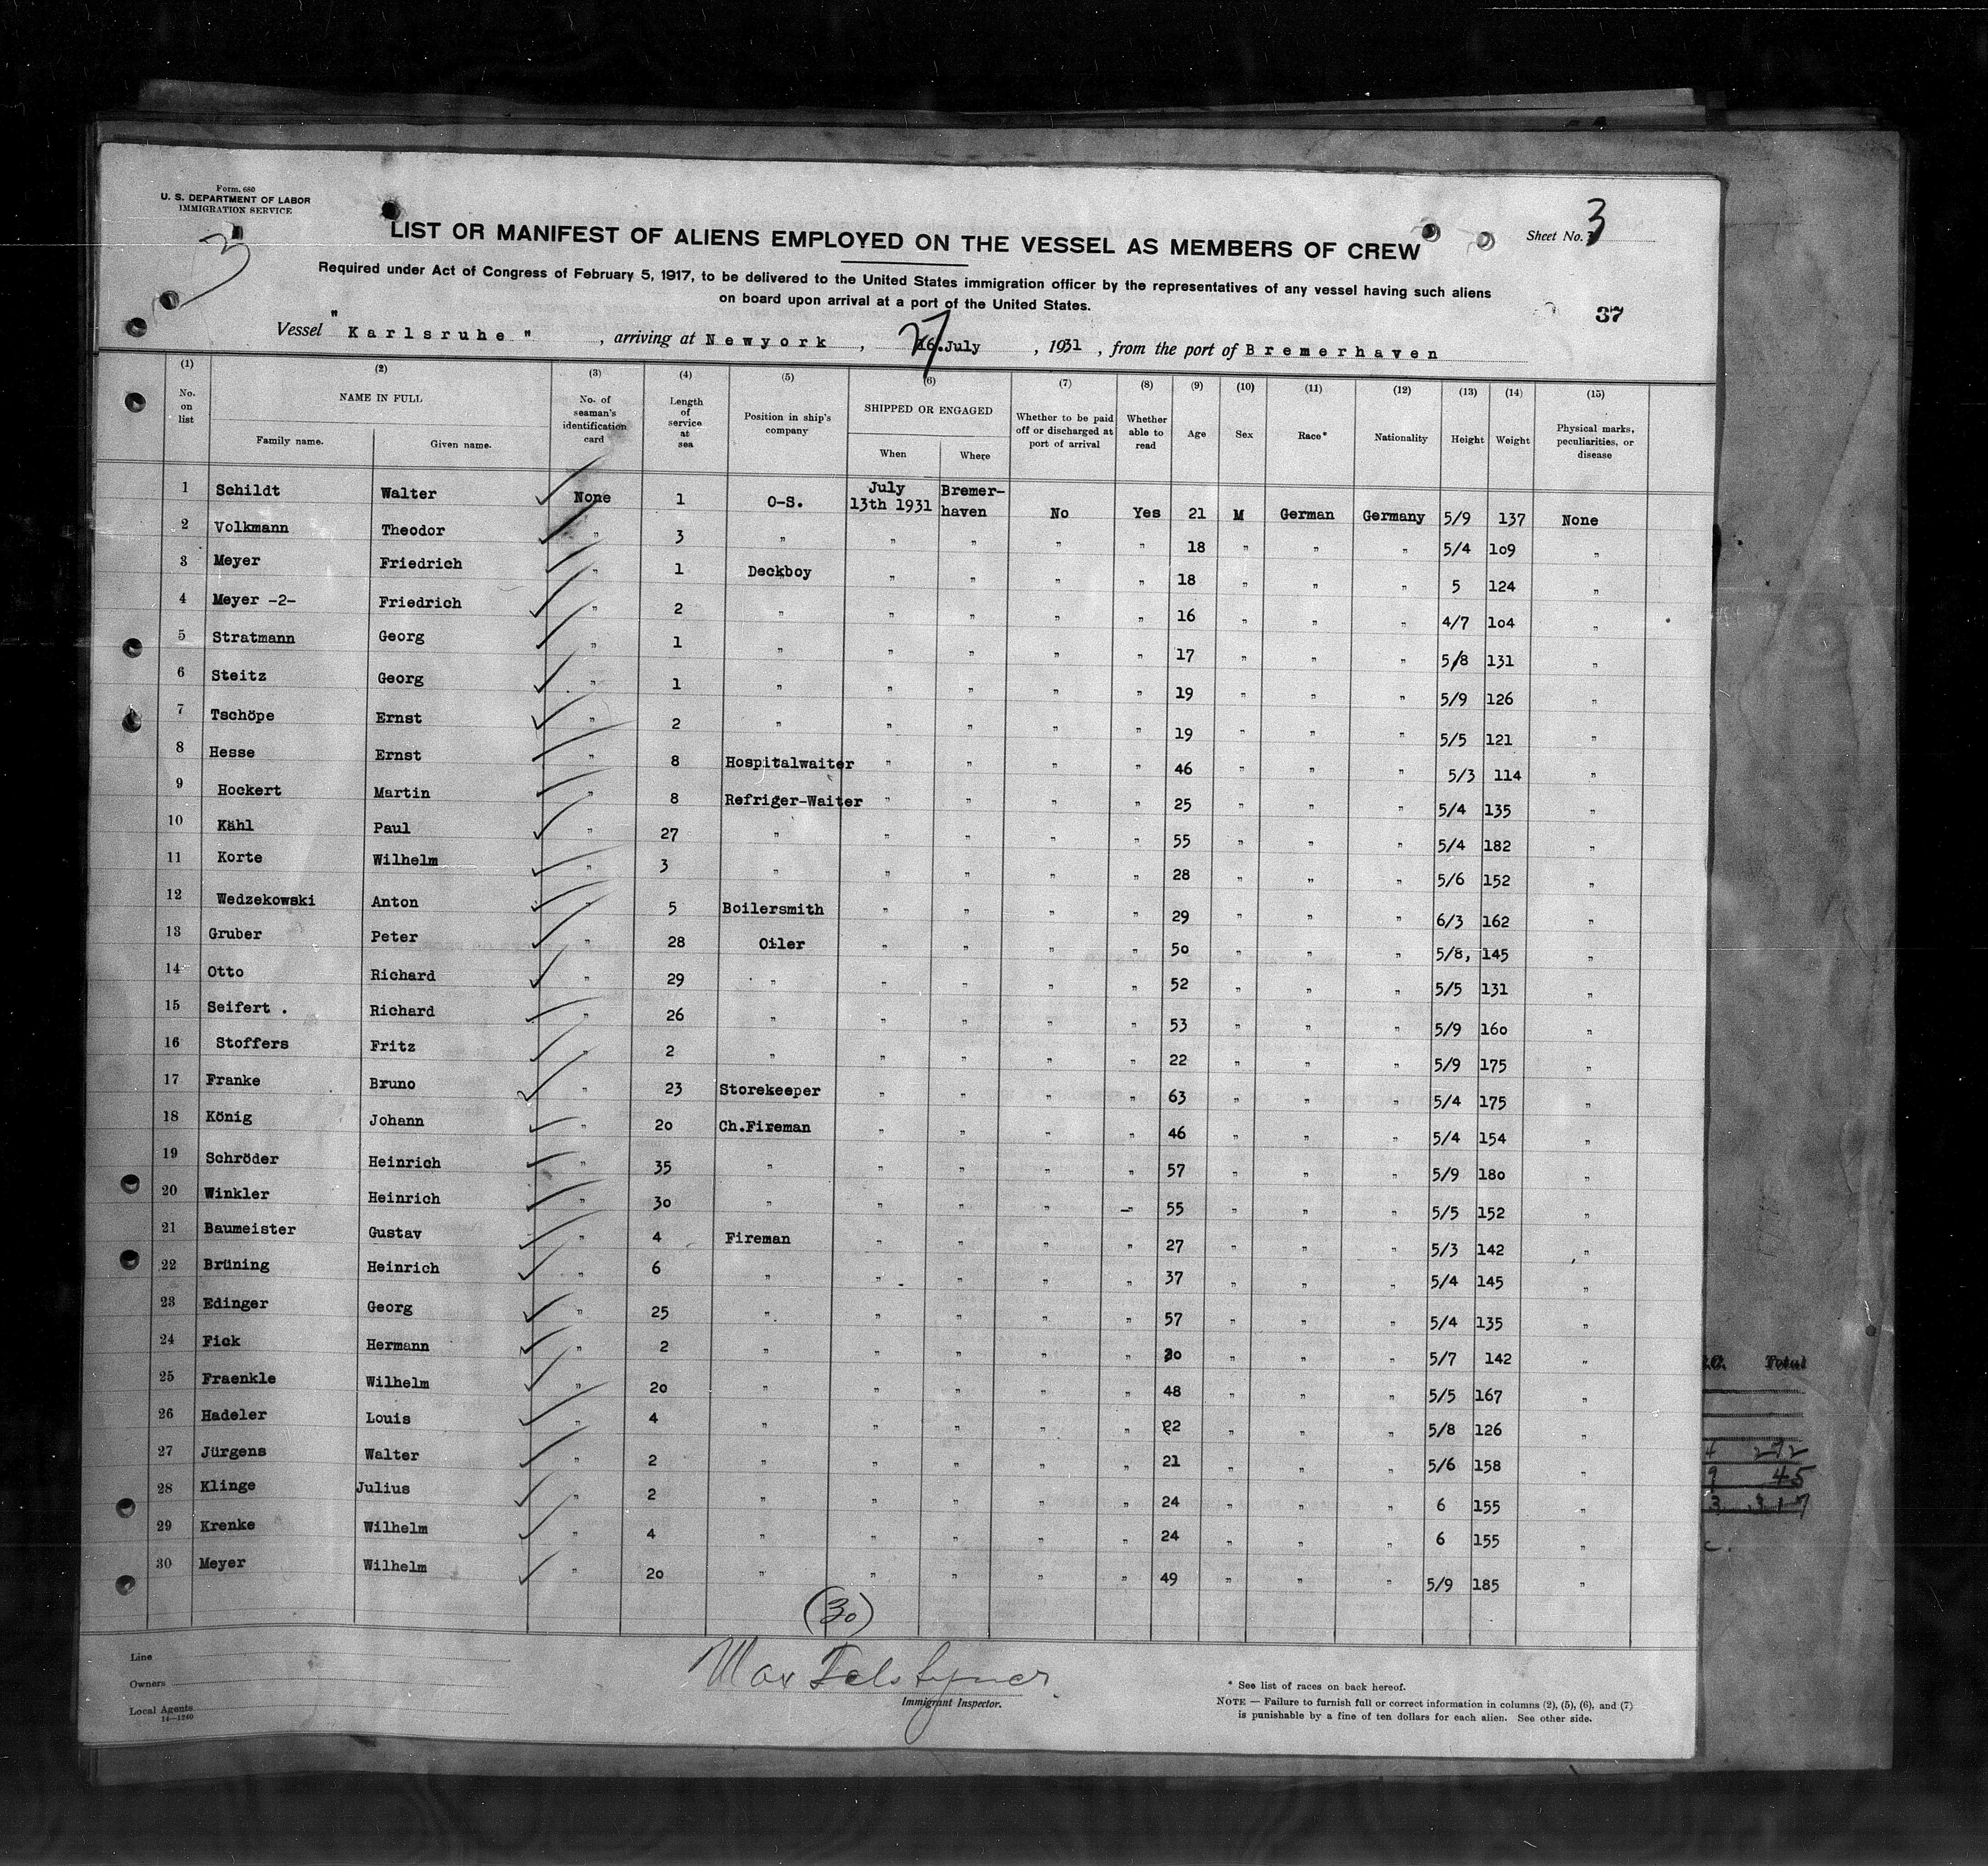 Form. 680
U. S. DEPARTMENT OF LABOR
IMMIGRATION SERVICE
3
LIST OR MANIFEST OF ALIENS EMPLOYED ON THE VESSEL AS MEMBERS OF CREW
Sheet No. 3
Required under Act of Congress of February 5, 1917, to be delivered to the United States immigration officer by the representatives of any vessel having such aliens
on board upon arrival at a port of the United States.
37
Vessel "Karlsruhe", arriving at Newyork, 27 July, 1931, from the port of Bremerhaven
(1) (2) (3) (4) (5) (6) (7) (8) (9) (10) (11) (12) (13) (14) (15)
No. on list NAME IN FULL Family name. Given name. No. of seaman's identification card Length of service at sea Position in ship's company SHIPPED OR ENGAGED When Where Whether to be paid off or discharged at port of arrival Whether able to read Age Sex Race* Nationality Height Weight Physical marks, peculiarities, or disease
1 Schildt Walter None 1 O-S. July 13th 1931 Bremer-haven No Yes 21 M German Germany 5/9 137 None
2 Volkmann Theodor " 3 " " " " " 18 " " " 5/4 109 "
3 Meyer Friedrich " 1 Deckboy " " " " 18 " " " 5 124 "
4 Meyer -2- Friedrich " 2 " " " " " 16 " " " 4/7 104 "
5 Stratmann Georg " 1 " " " " " 17 " " " 5/8 131 "
6 Steitz Georg " 1 " " " " " 19 " " " 5/9 126 "
7 Tschöpe Ernst " 2 " " " " " 19 " " " 5/5 121 "
8 Hesse Ernst " 8 Hospitalwaiter " " " " 46 " " " 5/3 114 "
9 Hockert Martin " 8 Refriger-Waiter " " " " 25 " " " 5/4 135 "
10 Kähl Paul " 27 " " " " " 55 " " " 5/4 182 "
11 Korte Wilhelm " 3 " " " " " 28 " " " 5/6 152 "
12 Wedzekowski Anton " 5 Boilersmith " " " " 29 " " " 6/3 162 "
13 Gruber Peter " 28 Oiler " " " " 50 " " " 5/8, 145 "
14 Otto Richard " 29 " " " " " 52 " " " 5/5 131 "
15 Seifert . Richard " 26 " " " " " 53 " " " 5/9 160 "
16 Stoffers Fritz " 2 " " " " " 22 " " " 5/9 175 "
17 Franke Bruno " 23 Storekeeper " " " " 63 " " " 5/4 175 "
18 König Johann " 20 Ch.Fireman " " " " 46 " " " 5/4 154 "
19 Schröder Heinrich " 35 " " " " " 57 " " " 5/9 180 "
20 Winkler Heinrich " 30 " " " " " 55 " " " 5/5 152 "
21 Baumeister Gustav " 4 Fireman " " " " 27 " " " 5/3 142 "
22 Brüning Heinrich " 6 " " " " " 37 " " " 5/4 145 "
23 Edinger Georg " 25 " " " " " 57 " " " 5/4 135 "
24 Fick Hermann " 2 " " " " " 30 " " " 5/7 142 "
25 Fraenkle Wilhelm " 20 " " " " " 48 " " " 5/5 167 "
26 Hadeler Louis " 4 " " " " " 22 " " " 5/8 126 "
27 Jürgens Walter " 2 " " " " " 21 " " " 5/6 158 "
28 Klinge Julius " 2 " " " " " 24 " " " 6 155 "
29 Krenke Wilhelm " 4 " " " " " 24 " " " 6 155 "
30 Meyer Wilhelm " 20 " " " " " 49 " " " 5/9 185 "
(30)
Line
Owners
Local Agents
14—1240
Immigrant Inspector.
* See list of races on back hereof.
NOTE — Failure to furnish full or correct information in columns (2), (5), (6), and (7)
is punishable by a fine of ten dollars for each alien. See other side.
Total
4 272
9 45
3 317